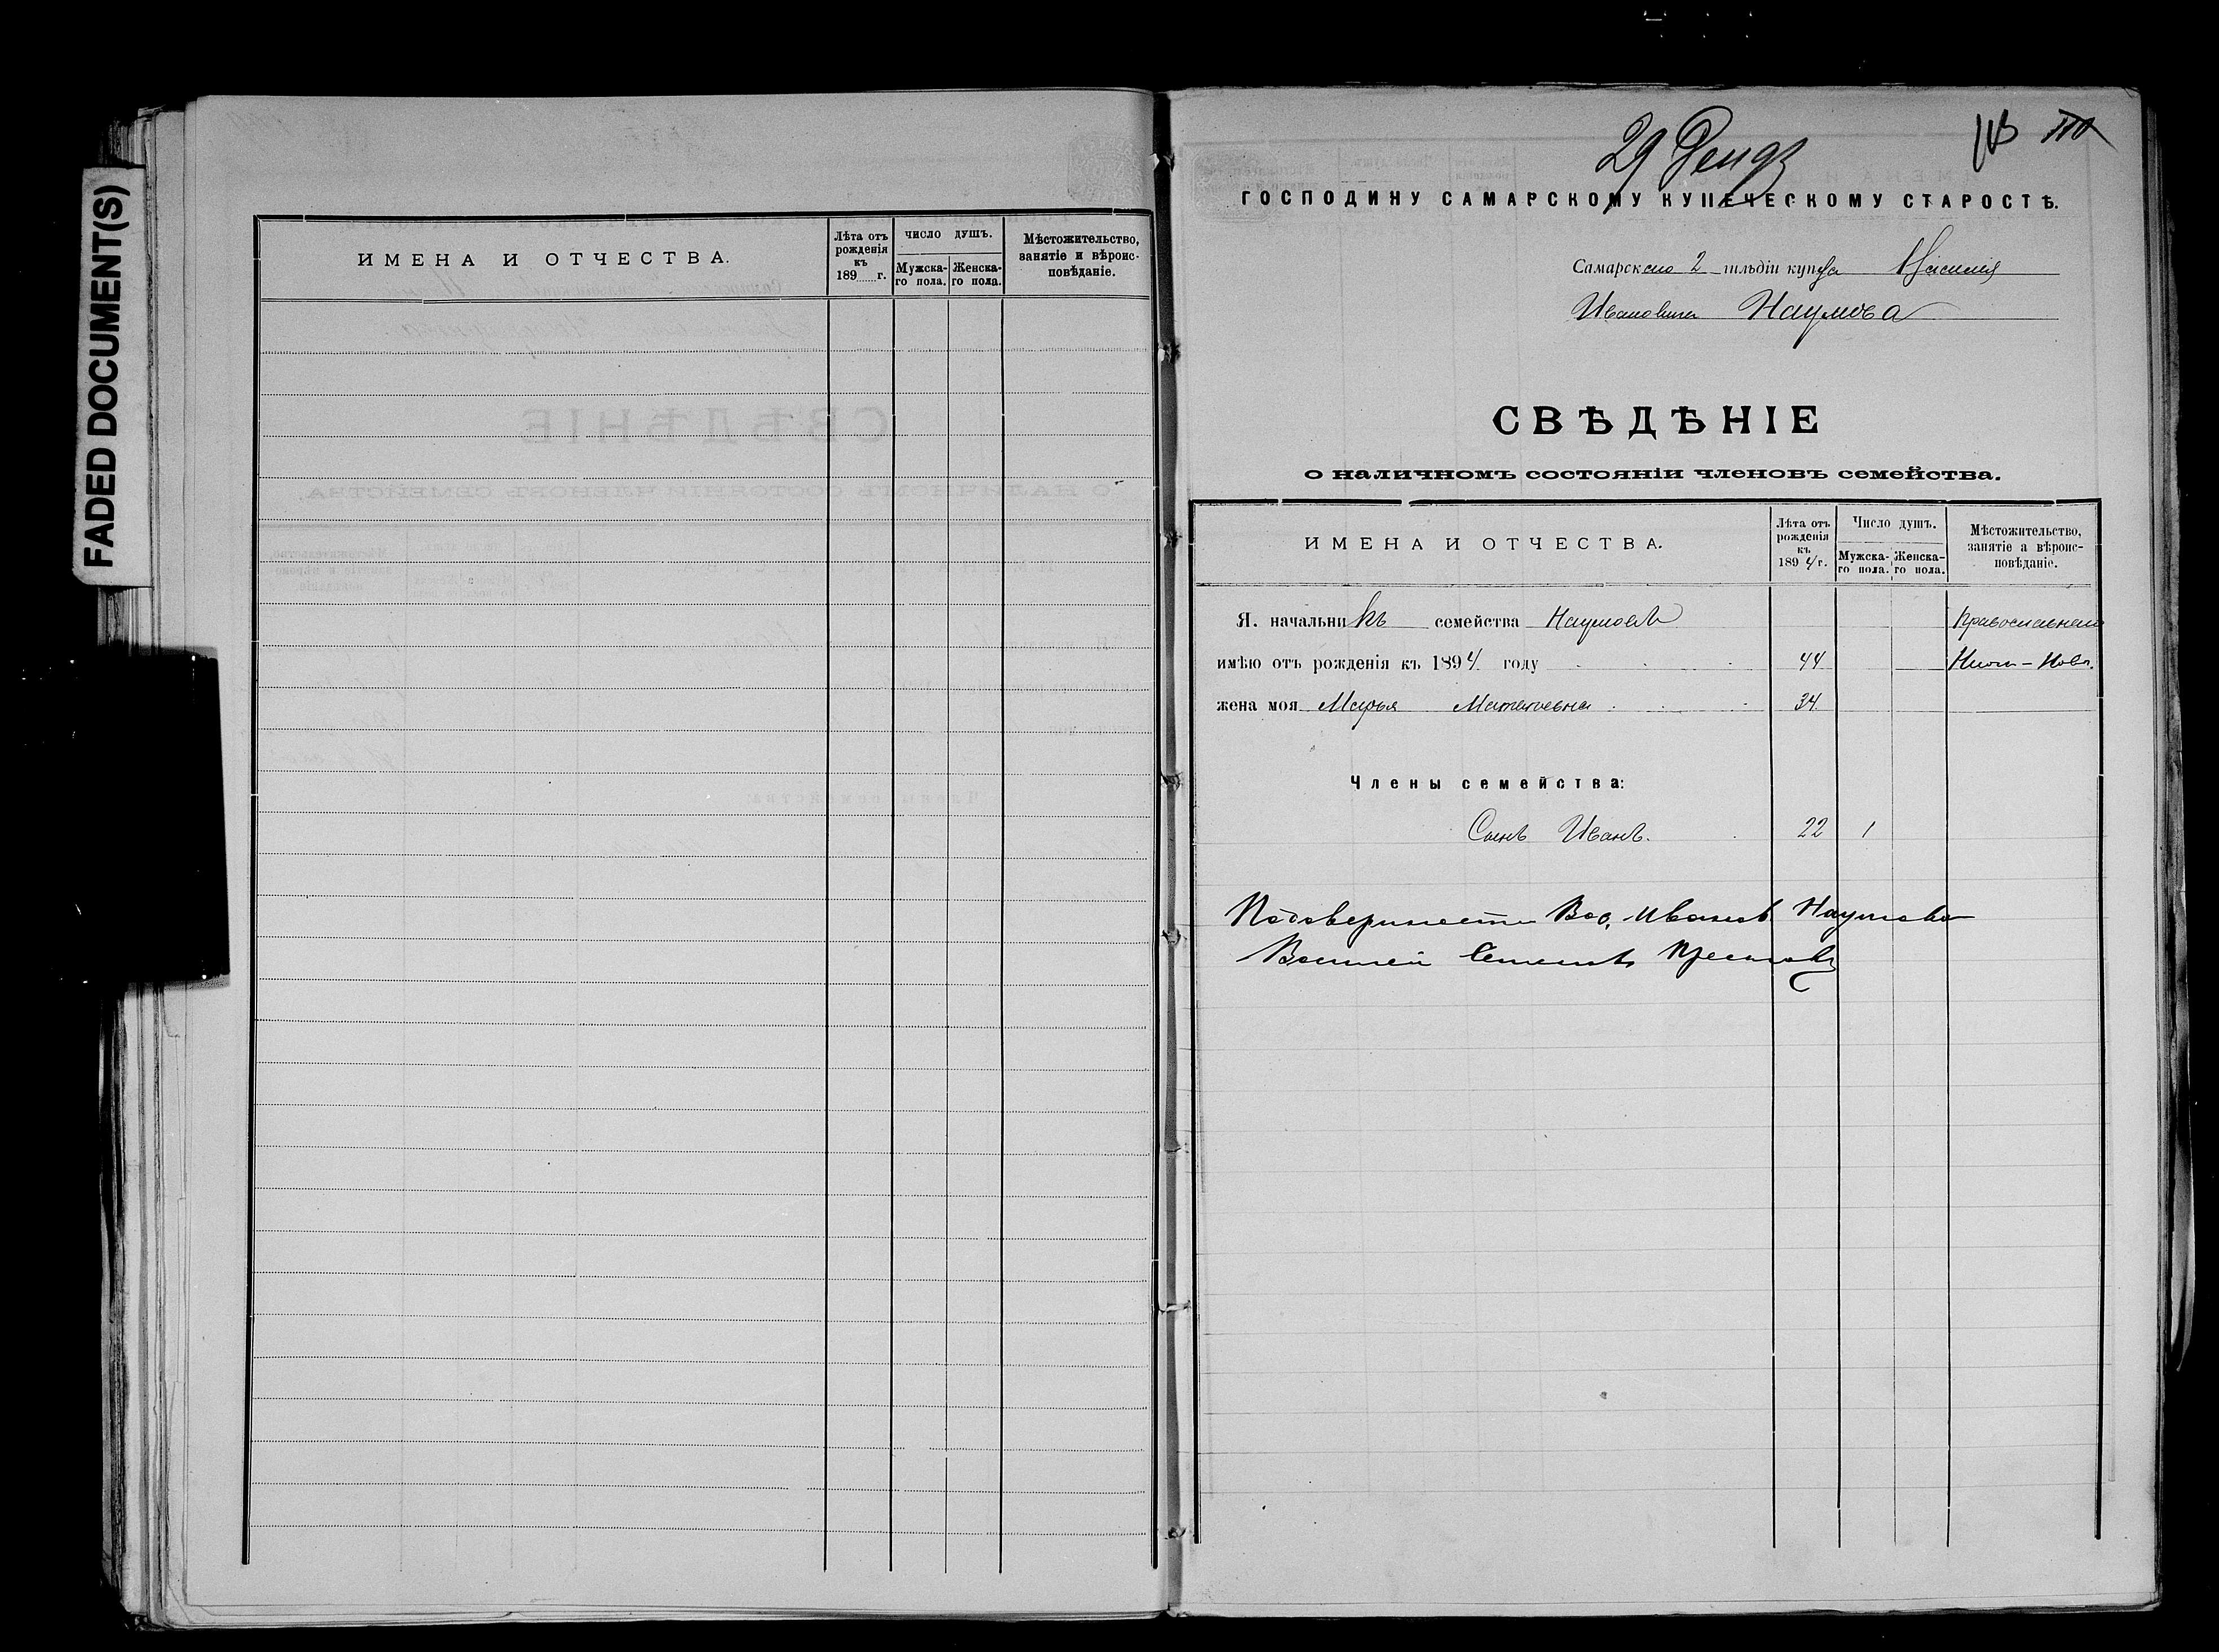 FADED DOCUMENT(S)
ИМЕНА И ОТЧЕСТВА.
Лѣта отъ рожденія къ 189 г.
ЧИСЛО ДУШЪ.
Мужска-го пола.
Женска-го пола.
Мѣстожительство, занятіе и вѣроис-повѣданіе.
29 Декдз
113 110
ГОСПОДИНУ САМАРСКОМУ КУПЕЧЕСКОМУ СТАРОСТѢ.
Самарскаго 2 гильдіи купца Василія
Ивановича Наумова
СВѢДѢНІЕ
о наличномъ состояніи членовъ семейства.
ИМЕНА И ОТЧЕСТВА.
Лѣта отъ рожденія къ 1894 г.
Число душъ.
Мужска-го пола.
Женска-го пола.
Мѣстожительство, занятіе а вѣроис-повѣданіе.
Я. начальникъ семейства Наумовъ Православнаго
имѣю отъ рожденія къ 1894 году 44
жена моя Марья Матвѣевна 34
Члены семейства:
Сынъ Иванъ. 22 1
Подоверинасти Вас. Иванов. Наумова
Василей Семеновъ